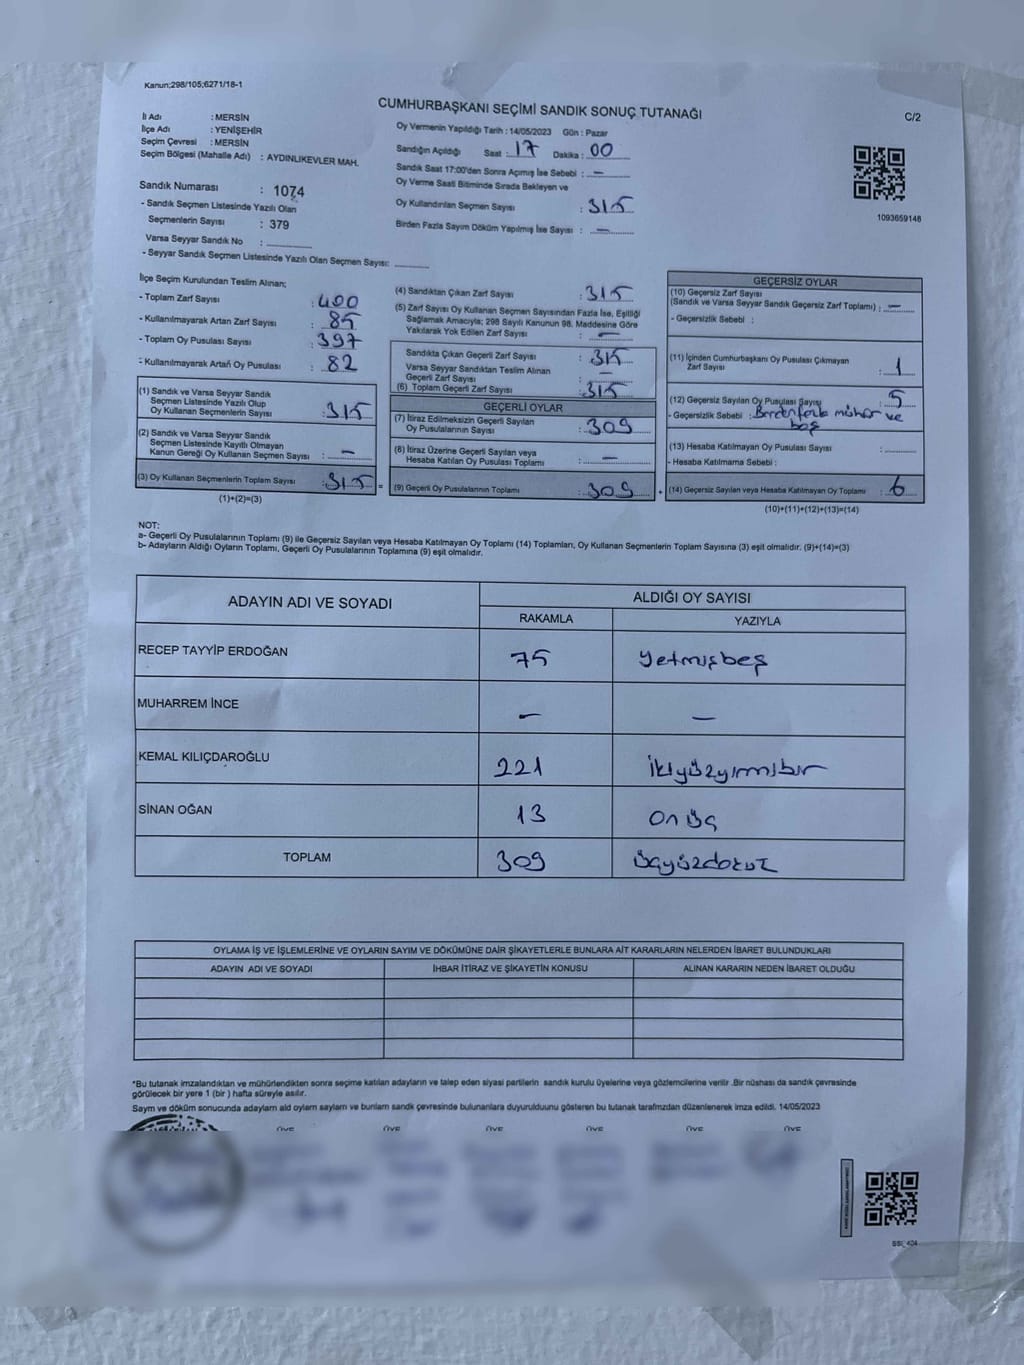 Kanun;298/105;6271/18-1
CUMHURBAŞKANI SEÇİMİ SANDIK SONUÇ TUTANAĞI
C/2
İl Adı : MERSİN
İlçe Adı : YENİŞEHİR
Seçim Çevresi : MERSİN
Seçim Bölgesi (Mahalle Adı) : AYDINLIKEVLER MAH.
Sandık Numarası : 1074
- Sandık Seçmen Listesinde Yazılı Olan
Seçmenlerin Sayısı : 379
Varsa Seyyar Sandık No :
- Seyyar Sandık Seçmen Listesinde Yazılı Olan Seçmen Sayısı:
Oy Vermenin Yapıldığı Tarih : 14/05/2023 Gün : Pazar
Sandığın Açıldığı Saat : 17 Dakika : 00
Sandık Saat 17:00'den Sonra Açımış İse Sebebi : -
Oy Verme Saati Bitiminde Sırada Bekleyen ve
Oy Kullandırılan Seçmen Sayısı : 315
Birden Fazla Sayım Döküm Yapılmış İse Sayısı : -
1093659148
İlçe Seçim Kurulundan Teslim Alınan;
- Toplam Zarf Sayısı : 400
- Kullanılmayarak Artan Zarf Sayısı : 85
- Toplam Oy Pusulası Sayısı : 397
- Kullanılmayarak Artan Oy Pusulası : 82
(1) Sandık ve Varsa Seyyar Sandık
Seçmen Listesinde Yazılı Olup
Oy Kullanan Seçmenlerin Sayısı : 315
(2) Sandık ve Varsa Seyyar Sandık
Seçmen Listesinde Kayıtlı Olmayan
Kanun Gereği Oy Kullanan Seçmen Sayısı : -
(3) Oy Kullanan Seçmenlerin Toplam Sayısı : 315 =
(1)+(2)=(3)
(4) Sandıktan Çıkan Zarf Sayısı : 315
(5) Zarf Sayısı Oy Kullanan Seçmen Sayısından Fazla İse, Eşitliği
Sağlamak Amacıyla; 298 Sayılı Kanunun 98. Maddesine Göre
Yakılarak Yok Edilen Zarf Sayısı : -
Sandıkta Çıkan Geçerli Zarf Sayısı : 315
Varsa Seyyar Sandıktan Teslim Alınan
Geçerli Zarf Sayısı : -
(6) Toplam Geçerli Zarf Sayısı : 315
GEÇERLİ OYLAR
(7) İtiraz Edilmeksizin Geçerli Sayılan
Oy Pusulalarının Sayısı : 309
(8) İtiraz Üzerine Geçerli Sayılan veya
Hesaba Katılan Oy Pusulası Toplamı : -
(9) Geçerli Oy Pusulalarının Toplamı : 309 +
GEÇERSİZ OYLAR
(10) Geçersiz Zarf Sayısı
(Sandık ve Varsa Seyyar Sandık Geçersiz Zarf Toplamı) : -
- Geçersizlik Sebebi :
(11) İçinden Cumhurbaşkanı Oy Pusulası Çıkmayan
Zarf Sayısı : 1
(12) Geçersiz Sayılan Oy Pusulası Sayısı : 5
- Geçersizlik Sebebi : Birden fazla mühür ve
boş
(13) Hesaba Katılmayan Oy Pusulası Sayısı :
- Hesaba Katılmama Sebebi :
(14) Geçersiz Sayılan veya Hesaba Katılmayan Oy Toplamı : 6
(10)+(11)+(12)+(13)=(14)
NOT:
a- Geçerli Oy Pusulalarının Toplamı (9) ile Geçersiz Sayılan veya Hesaba Katılmayan Oy Toplamı (14) Toplamları, Oy Kullanan Seçmenlerin Toplam Sayısına (3) eşit olmalıdır. (9)+(14)=(3)
b- Adayların Aldığı Oyların Toplamı, Geçerli Oy Pusulalarının Toplamına (9) eşit olmalıdır.
ADAYIN ADI VE SOYADI ALDIĞI OY SAYISI
RAKAMLA YAZIYLA
RECEP TAYYİP ERDOĞAN 75 yetmişbeş
MUHARREM İNCE - -
KEMAL KILIÇDAROĞLU 221 ikiyüzyirmibir
SİNAN OĞAN 13 onüç
TOPLAM 309 üçyüzdokuz
OYLAMA İŞ VE İŞLEMLERİNE VE OYLARIN SAYIM VE DÖKÜMÜNE DAİR ŞİKAYETLERLE BUNLARA AİT KARARLARIN NELERDEN İBARET BULUNDUKLARI
ADAYIN ADI VE SOYADI İHBAR İTİRAZ VE ŞİKAYETİN KONUSU ALINAN KARARIN NEDEN İBARET OLDUĞU
*Bu tutanak imzalandıktan ve mühürlendikten sonra seçime katılan adayların ve talep eden siyasi partilerin sandık kurulu üyelerine veya gözlemcilerine verilir .Bir nüshası da sandık çevresinde
görülecek bir yere 1 (bir ) hafta süreyle asılır.
Sayım ve döküm sonucunda adayların ald oyların sayıları ve bunların sandk çevresinde bulunanlara duyurulduunu gösteren bu tutanak tarafmzdan düzenlenerek imza edildi. 14/05/2023
ÜYE ÜYE ÜYE ÜYE ÜYE ÜYE